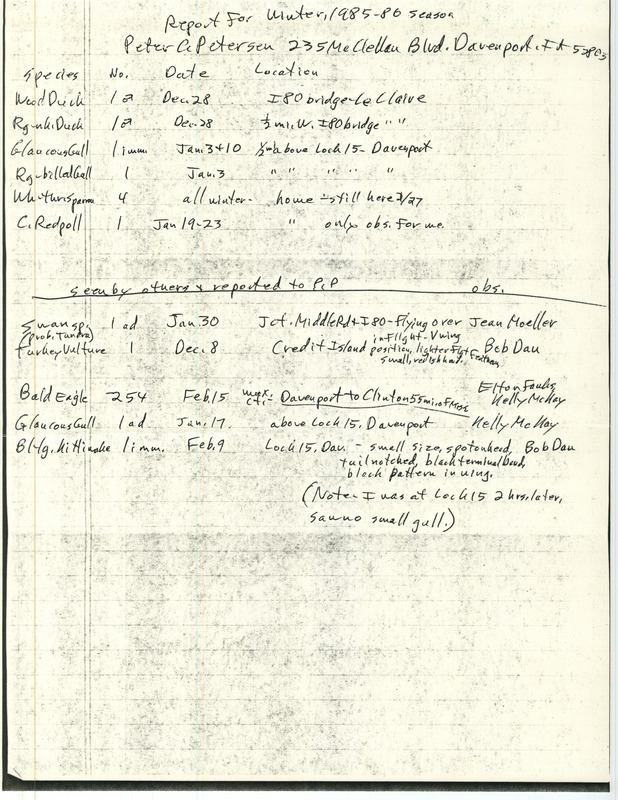 Report For Winter, 1985-86 season
Peter C. Petersen 235 McClellan Blvd. Davenport, IA 52803
Species No. Date Location
Wood Duck 1♂ Dec. 28 I80 bridge-Le Claire
Rg-nk. Duck 1♂ Dec. 28 ½ mi. W. I80 bridge " "
Glaucous Gull 1 imm. Jan. 3+10 ½ mi. above Lock 15- Davenport
Rg-billed Gull 1 Jan. 3 " " " " "
Wh-thr. sparrow 4 all winter- home - still here 2/27
C. Redpoll 1 Jan 19-23 " only obs. for me.
seen by others & reported to PCP obs.
Swan sp. 1 ad Jan. 30 Jct. Middle Rd + I80-Flying over Jean Moeller
(prob. Tundra)
Turkey Vulture 1 Dec. 8 Credit Island in flight-V wing position, lighter flight feathers, small, reddish head. Bob Dau
Bald Eagle 254 Feb 15 Davenport to Clinton 55 mi. of Miss Elton Fawks, Kelly McKay
Glaucous Gull 1 ad Jan. 17. above Lock 15. Davenport Kelly McKay
Bl-lg. Kittiwake 1 imm. Feb. 9 Lock 15. Dav. - small size, spot on head, Bob Dau
tail notched, black terminal band,
black pattern in wing.
(Note- I was at Lock 15 2 hrs. later,
saw no small gull.)